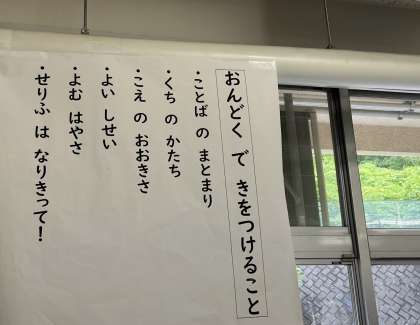 おんどく で きをつけること
・ことば の まとまり
・くち の かたち
・こえ の おおきさ
・よい しせい
・よむ はやさ
・せりふ は なりきって!